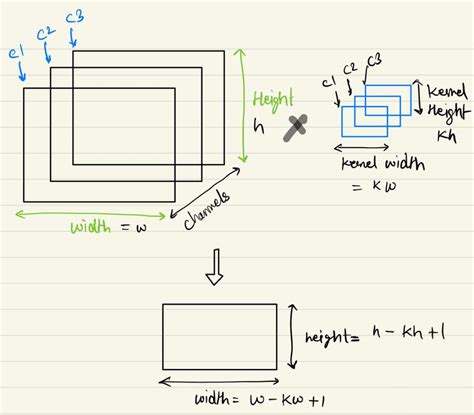 c1 c2 c3
Height
h
channels
width = w
c1 c2 c3
Kernel
Height
Kh
kernel width
= Kw
height= h - Kh + 1
width= w - Kw + 1